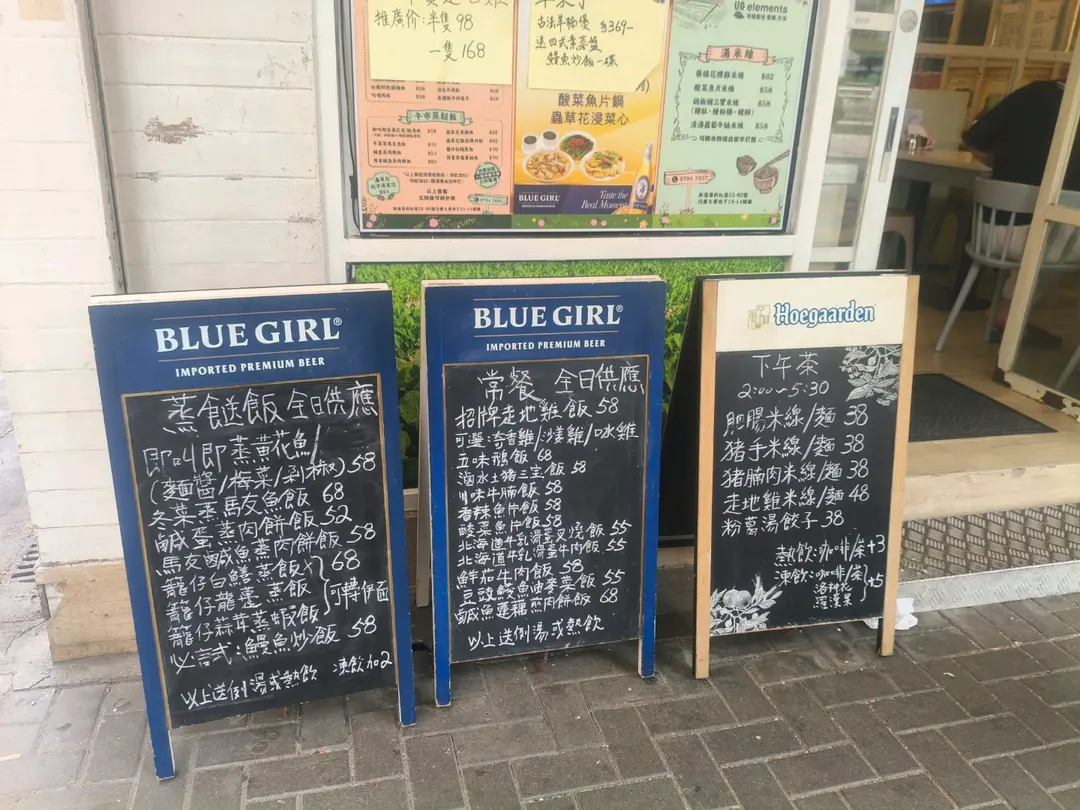 推廣價:半隻98
一隻168
古法羊腩煲
$369-
送四式煮葱盤
鰻魚炒飯一碟
酸菜魚片鍋
蟲草花浸菜心
BLUE GIRL
Taste the
Real Moment
午市蒸餸飯
UG elements
湯米線
$62
酸菜魚片米線 $58
胡椒豬三寶米線 $58
清湯蘿蔔牛腩米線 $58
BLUE GIRL®
IMPORTED PREMIUM BEER
蒸餸飯 全日供應
即叫即蒸黃花魚/
(麵醬/梅菜/剁椒) 58
冬菜蒸馬友魚飯 68
鹹蛋蒸肉餅飯 52
馬友鹹魚蒸肉餅飯 58
籠仔白鱔蒸飯 68
籠仔龍躉蒸飯 可轉伊面
籠仔蒜茸蒸蝦飯
必言式:鰻魚炒飯 58
以上送例湯或熱飲 凍飲加2
BLUE GIRL®
IMPORTED PREMIUM BEER
常餐 全日供應
招牌走地雞飯 58
可選:奇香雞/沙薑雞/口水雞
五味鵝飯 68
滷水土豬三宝飯 58
川味牛腩飯 58
香辣魚片飯 58
酸菜魚片飯 58
北海道牛乳滑蛋叉燒飯 55
北海道牛乳滑蛋牛肉飯 55
鮮茄牛肉飯 58
豆豉鯪魚油麥菜飯 55
鹹魚蓮藕煎肉餅飯 68
以上送例湯或熱飲
Hoegaarden
下午茶
2:00~5:30
肥腸米線/麵 38
豬手米線/麵 38
豬腩肉米線/麵 38
走地雞米線/麵 48
粉葛湯餃子 38
熱飲:咖啡/茶+3
凍飲:咖啡/茶/
洛神花 +5
羅漢果